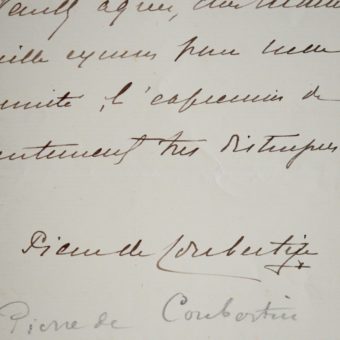 Veuillez agréer, cher Madame
mille excuses pour
l'expression de
sentiments très distingués
Pierre de Coubertin
Pierre de Coubertin